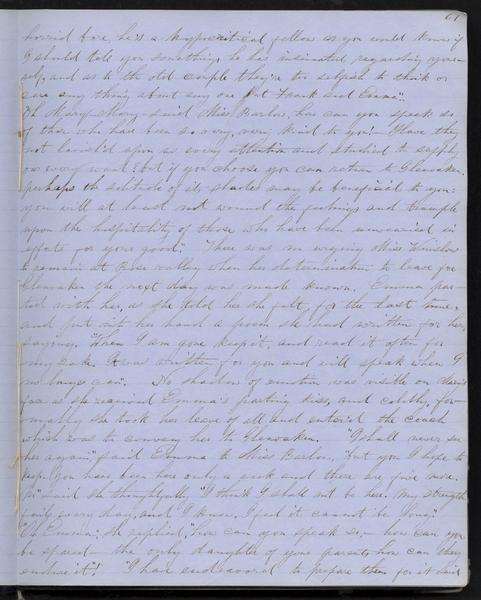 61
horrid bore, he's a hypocritical fellow as you would know if
I should tell you something he has insinuated regarding your-
self, and as to the old couple they're too selfish to think or
care any thing about any one but Frank and Emma".
Oh Mary-Mary - said Miss Barlow, how can you speak so
of those who have been so very, very kind to you! Have they
not lavish'd upon us every attention and studied to supply
our every want? but if you choose you can return to Glenoaken.
perhaps the solitude of its shades may be beneficial to you:
you will at least not wound the feelings and trample
upon the hospitality of those who have been unwearied in
efforts for your good." There was no urging Miss Winslow
to remain at Rose valley when her determination to leave for
Glenoaken the next day was made known. Emma par-
ted with her, as she told her she felt, for the last time,
and put into her hand a poem she had written for her,
saying. When I am gone keep it, and read it often for
my sake. It was written for you and will speak when I
no longer can". No shadow of emotion was visible on Mary's
face as she received Emma's parting kiss, and coldly, for-
mally she took her leave of all and enter'd the coach
which was to convey her to Glenoaken. "I shall never see
her again", said Emma to Miss Barlow, "but you I hope to
keep. You have been here only a week and there are five more.
said she thoughtfully "I think I shall not be here. My strength
fails every day, and I know, I feel it cannot be long."
"Oh Emma", she replied, "how can you speak so, - how can you
be spared - the only daughter of your parents, how can they
endure it"! "I have endeavored to prepare them for it said